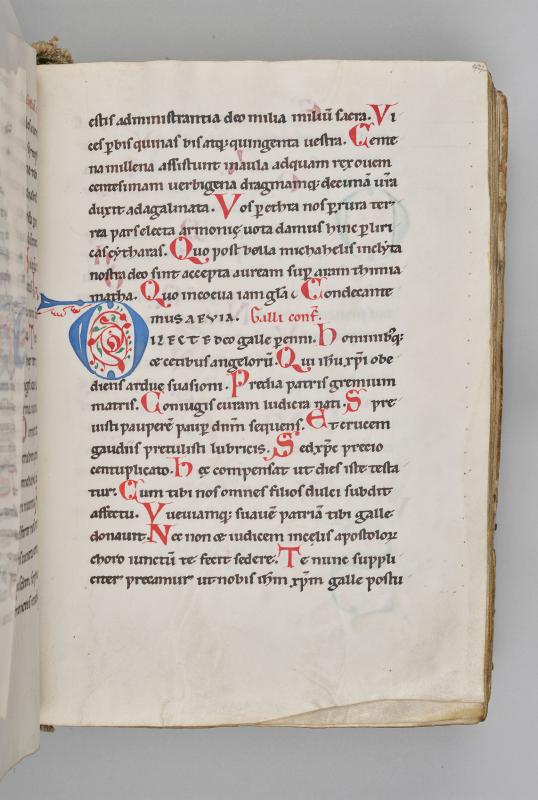 estis administrantia deo milia miliū sacra. Vi
ces ꝑbis quinas bis atq; quingenta uestra. Cente
na millena assistunt in aula adquam rex ouem
centesimam uerbigena dragmamq; decimā ur̄a
duxit adagalmata. Vos ꝑethra nos ꝑrura ter
rea pars electa armonię uota damus hinc ꝑliri
cas cytharas. Quo post bella michahelis inclyta
nostra deo sint accepta auream suꝑ aram thimia
matha. Quo incoeua iam gl̄a. Condecante
mus AEVIA. Galli conf.
DILECTE deo galle ꝑenni. hominibꝰq;
ęcetibus angelorū. Qui ih̄u xp̄i obe
diens ardue suasioni. Predia patris gremium
matris. Coniugis curam ludicra nati. S pre
uisti pauperē pauꝑ dn̄m sequens. Et crucem
gaudiis pretulisti lubricis. Sed xp̄c precio
centuplicato. hęc compensat ut dies iste testa
tur. Cum tibi nos omnes filios dulci subdit
affectu. Vueuiamq; suauē patriā tibi galle
donauit. Nec non ęc iudicem incelis apostoloꝝ
choro iunctū te fecit sedere. Te nunc suppli
citer precamur ut nobis ih̄m xp̄m galle postu